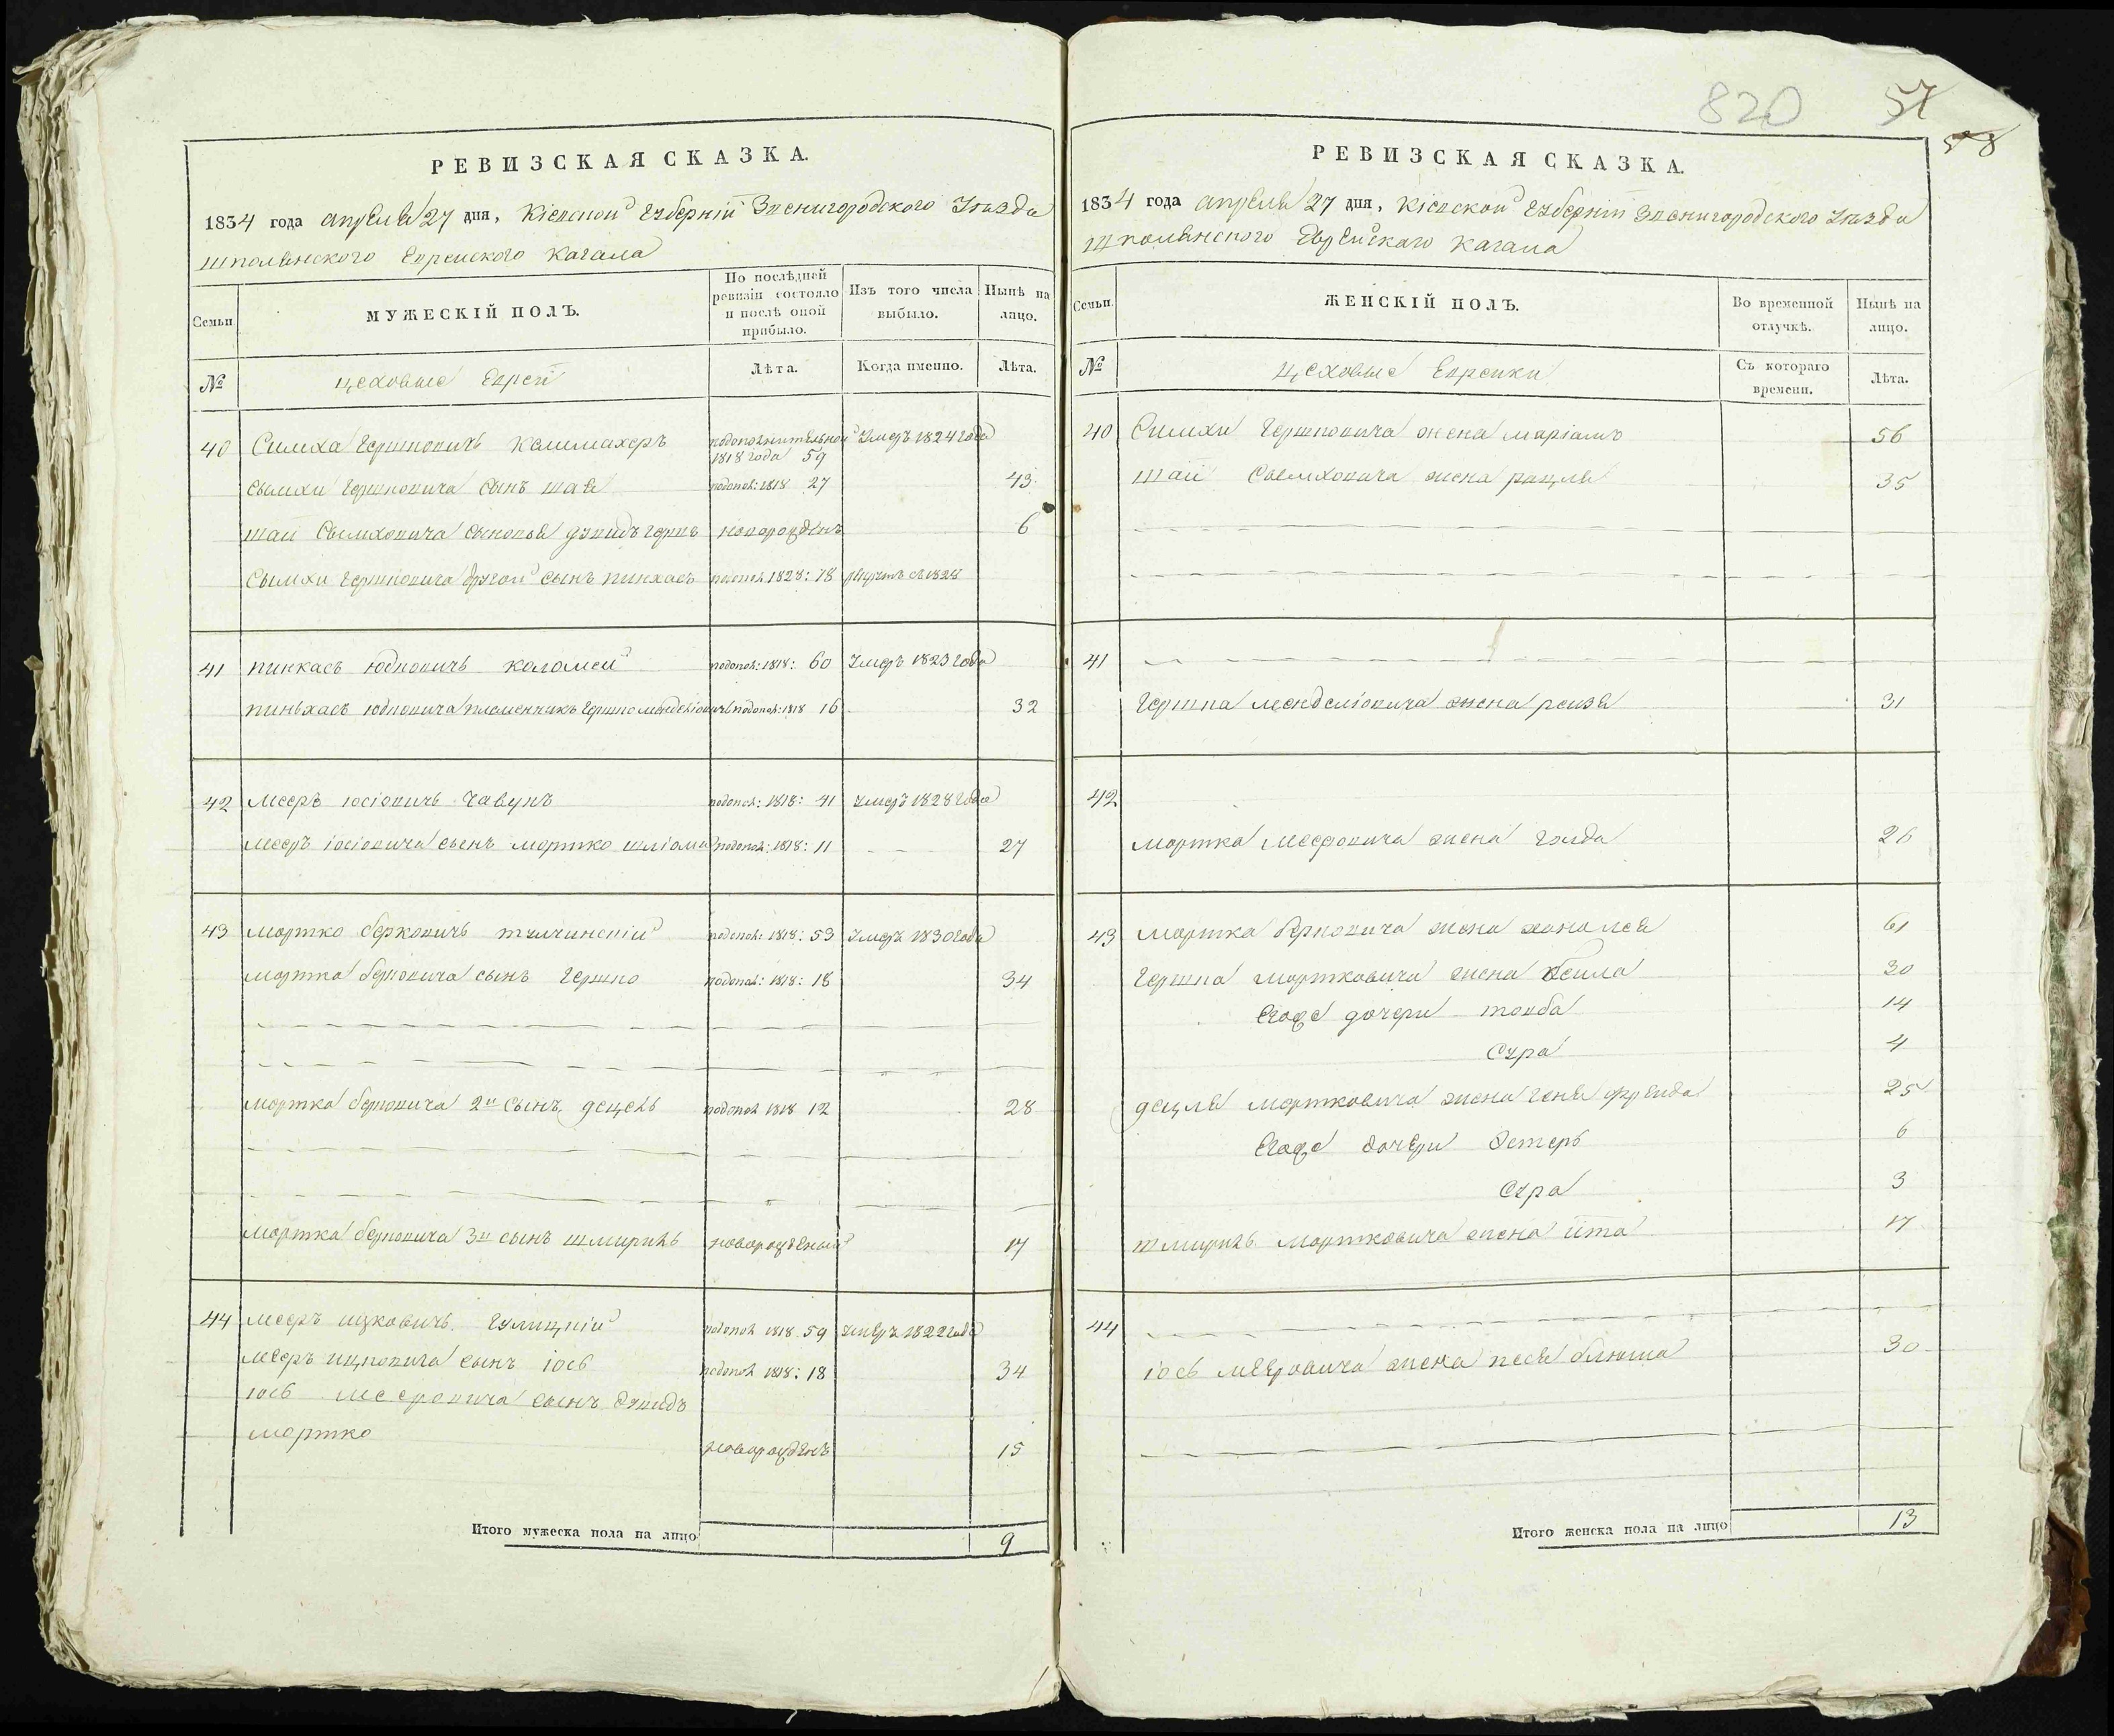 820 57
58
РЕВИЗСКАЯ СКАЗКА.
1834 года апреля 27 дня, Кіевской Губерніи Звенигородского Уезда
Шполянского Еврейского Кагала
Семьи
МУЖЕСКІЙ ПОЛЪ.
По послѣдней ревизіи состояло и послѣ оной прибыло.
Изъ того числа выбыло.
Нынѣ на лицо.
№
цеховые Евреи
Лѣта.
Когда именно.
Лѣта.
40 Симха Гершковичъ Калимахеръ подополнительной 1818 года 59 Умеръ 1824 года
Сымхи Гершковича сынъ Шая подопол: 1818 27 43
Шаи Сымховича сыновья Дэвидъ Гершъ новорожденъ 6
Сымхи Гершковича другой сынъ Пинхасъ 1828: 18 рекрутъ съ 1828
41 Пинкасъ Юдковичъ Коломей подопол: 1818: 60 Умеръ 1823 года
Пиньхасъ Юдковича племенникъ Гершко Менделіовичъ подопол: 1818 16 32
42 Мееръ Іосіовичъ Чавунъ подопол: 1818: 41 Умеръ 1828 года
Мееръ Іосіовича сынъ Мортко Шліома подопол: 1818: 11 27
43 Мортко Берковичъ Тулчинскій подопол: 1818: 53 Умеръ 1830 года
Мортка Берковича сынъ Гершко подопол: 1818: 18 34
Мортка Берковича 2й сынъ Децель подопол 1818 12 28
Мортка Берковича 3й сынъ Шмириль новорожденый 17
44 Мееръ Ицковичъ Гулицкій подопол 1818 59 Умеръ 1822 года
Мееръ Ицковича сынъ Іось подопол 1818: 18 34
Іось Мееровича сынъ Дэвидъ
Мортко новорожденъ 15
Итого мужеска пола на лицо 9
РЕВИЗСКАЯ СКАЗКА.
1834 года апреля 27 дня, Кіевской Губерніи Звенигородского Уезда
Шполянского Еврейскаго Кагала
Семьи.
ЖЕНСКІЙ ПОЛЪ.
Во временной отлучкѣ.
Нынѣ на лицо.
№
цеховые Еврейки
Съ котораго времени.
Лѣта.
40 Симхи Гершковича жена Маріамъ 56
Шаи Сымховича жена Рацля 35
41
Гершка Менделіовича жена Рейзя 31
42
Мортка Мееровича жена Голда 26
43 Мортка Берковича жена Ханалея 61
Гершка Мортковича жена Бейла 30
Егоже дочери Товба 14
Сура 4
Децля Мортковича жена Геня Фрейда 25
Егоже дочери Эстеръ 6
Сура 3
Шмириль Мортковича жена Ита 17
44
Іось Меeровича жена Песя Блюма 30
Итого женска пола на лицо 13